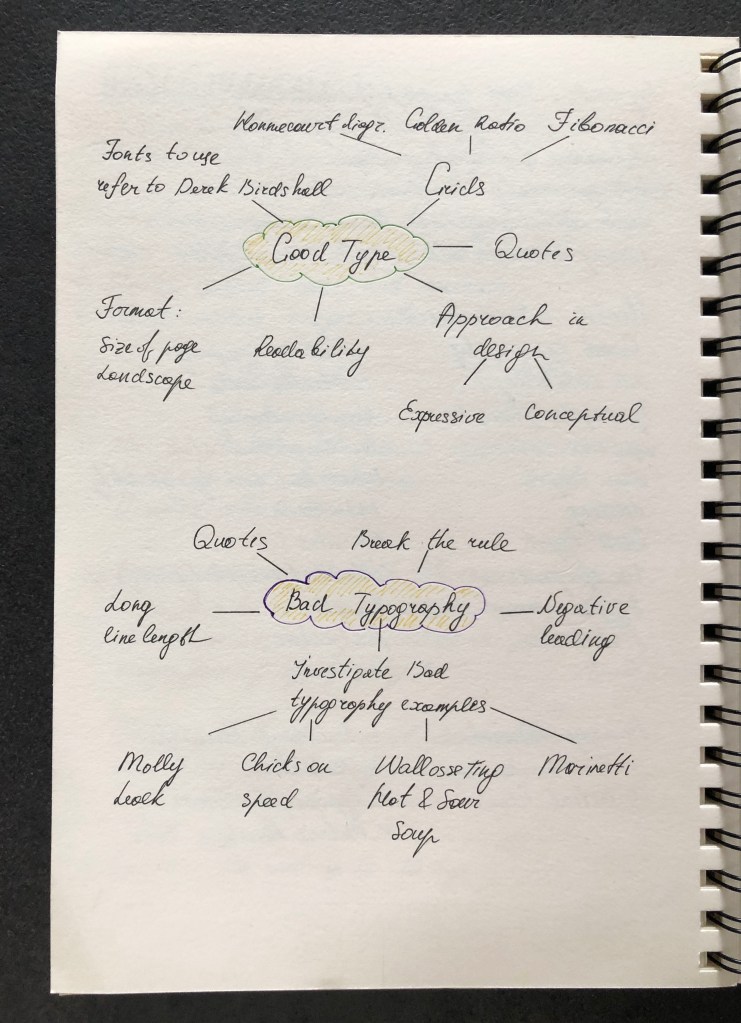 Honnecourt diagr. Golden Ratio Fibonacci
Fonts to use
refer to Derek Birdshall
Grids
Good Type
Quotes
Format:
Size of page
Landscape
Readability
Approach in
design
Expressive
Conceptual
Quotes
Break the rule
Long
line length
Bad Typography
Negative
leading
Investigate Bad
typography examples
Molly
Leek
Chicks on
speed
Wallosseting
Hot & Sour
Soup
Marinetti